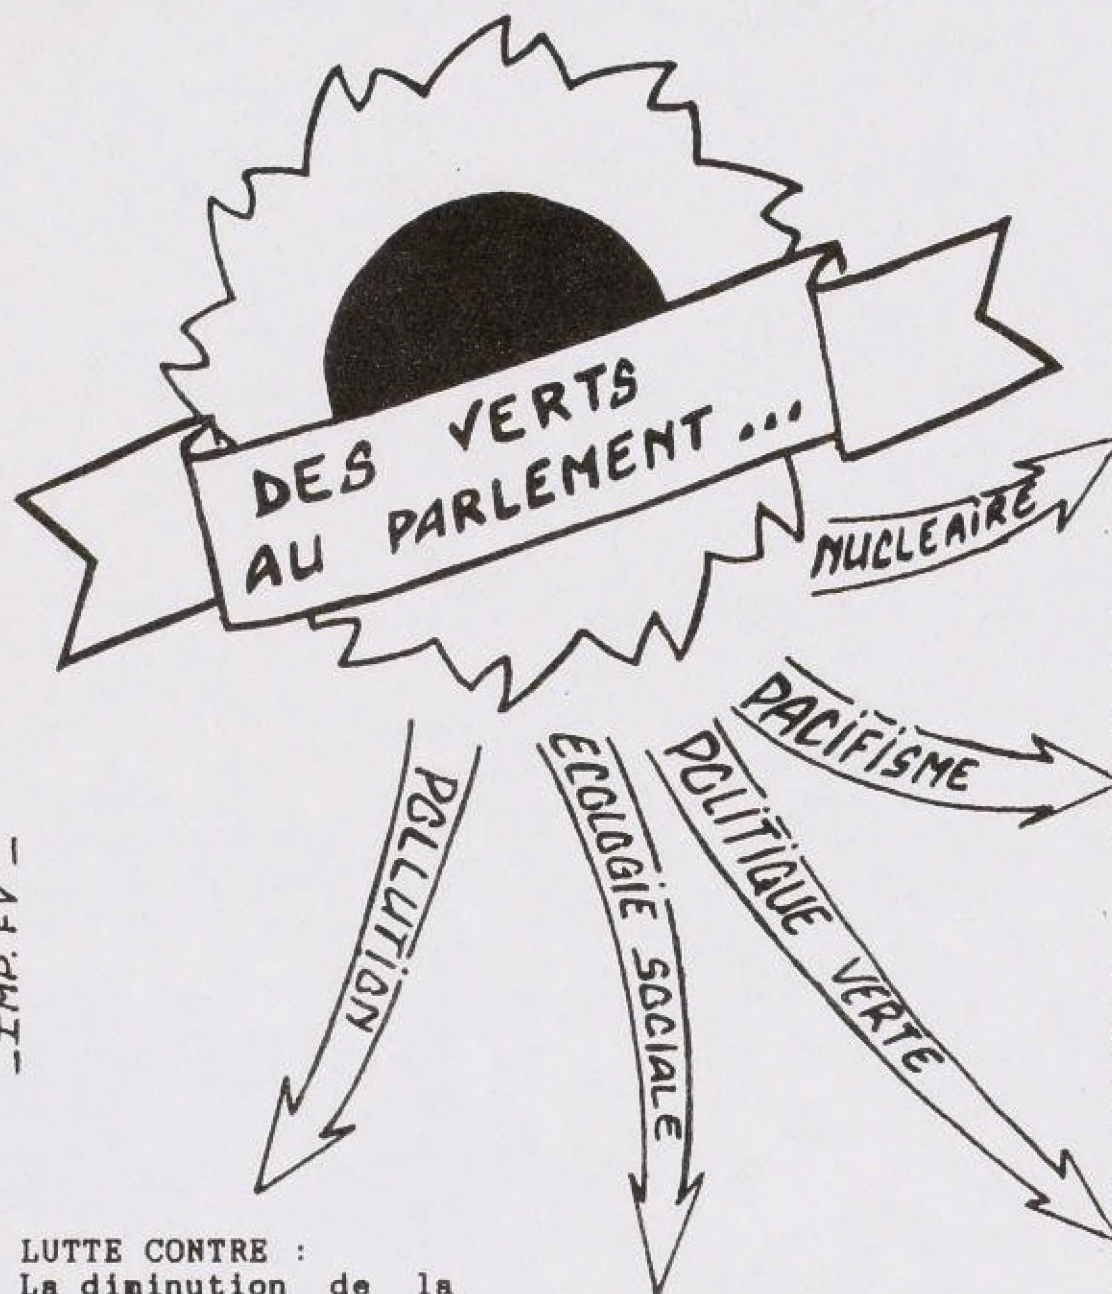 DES VERTS
AU PARLEMENT...
NUCLEAIRE
PACIFISME
POLITIQUE VERTE
ECOLOGIE SOCIALE
POLLUTION
_IMP. FV_
LUTTE CONTRE :
La diminution de la